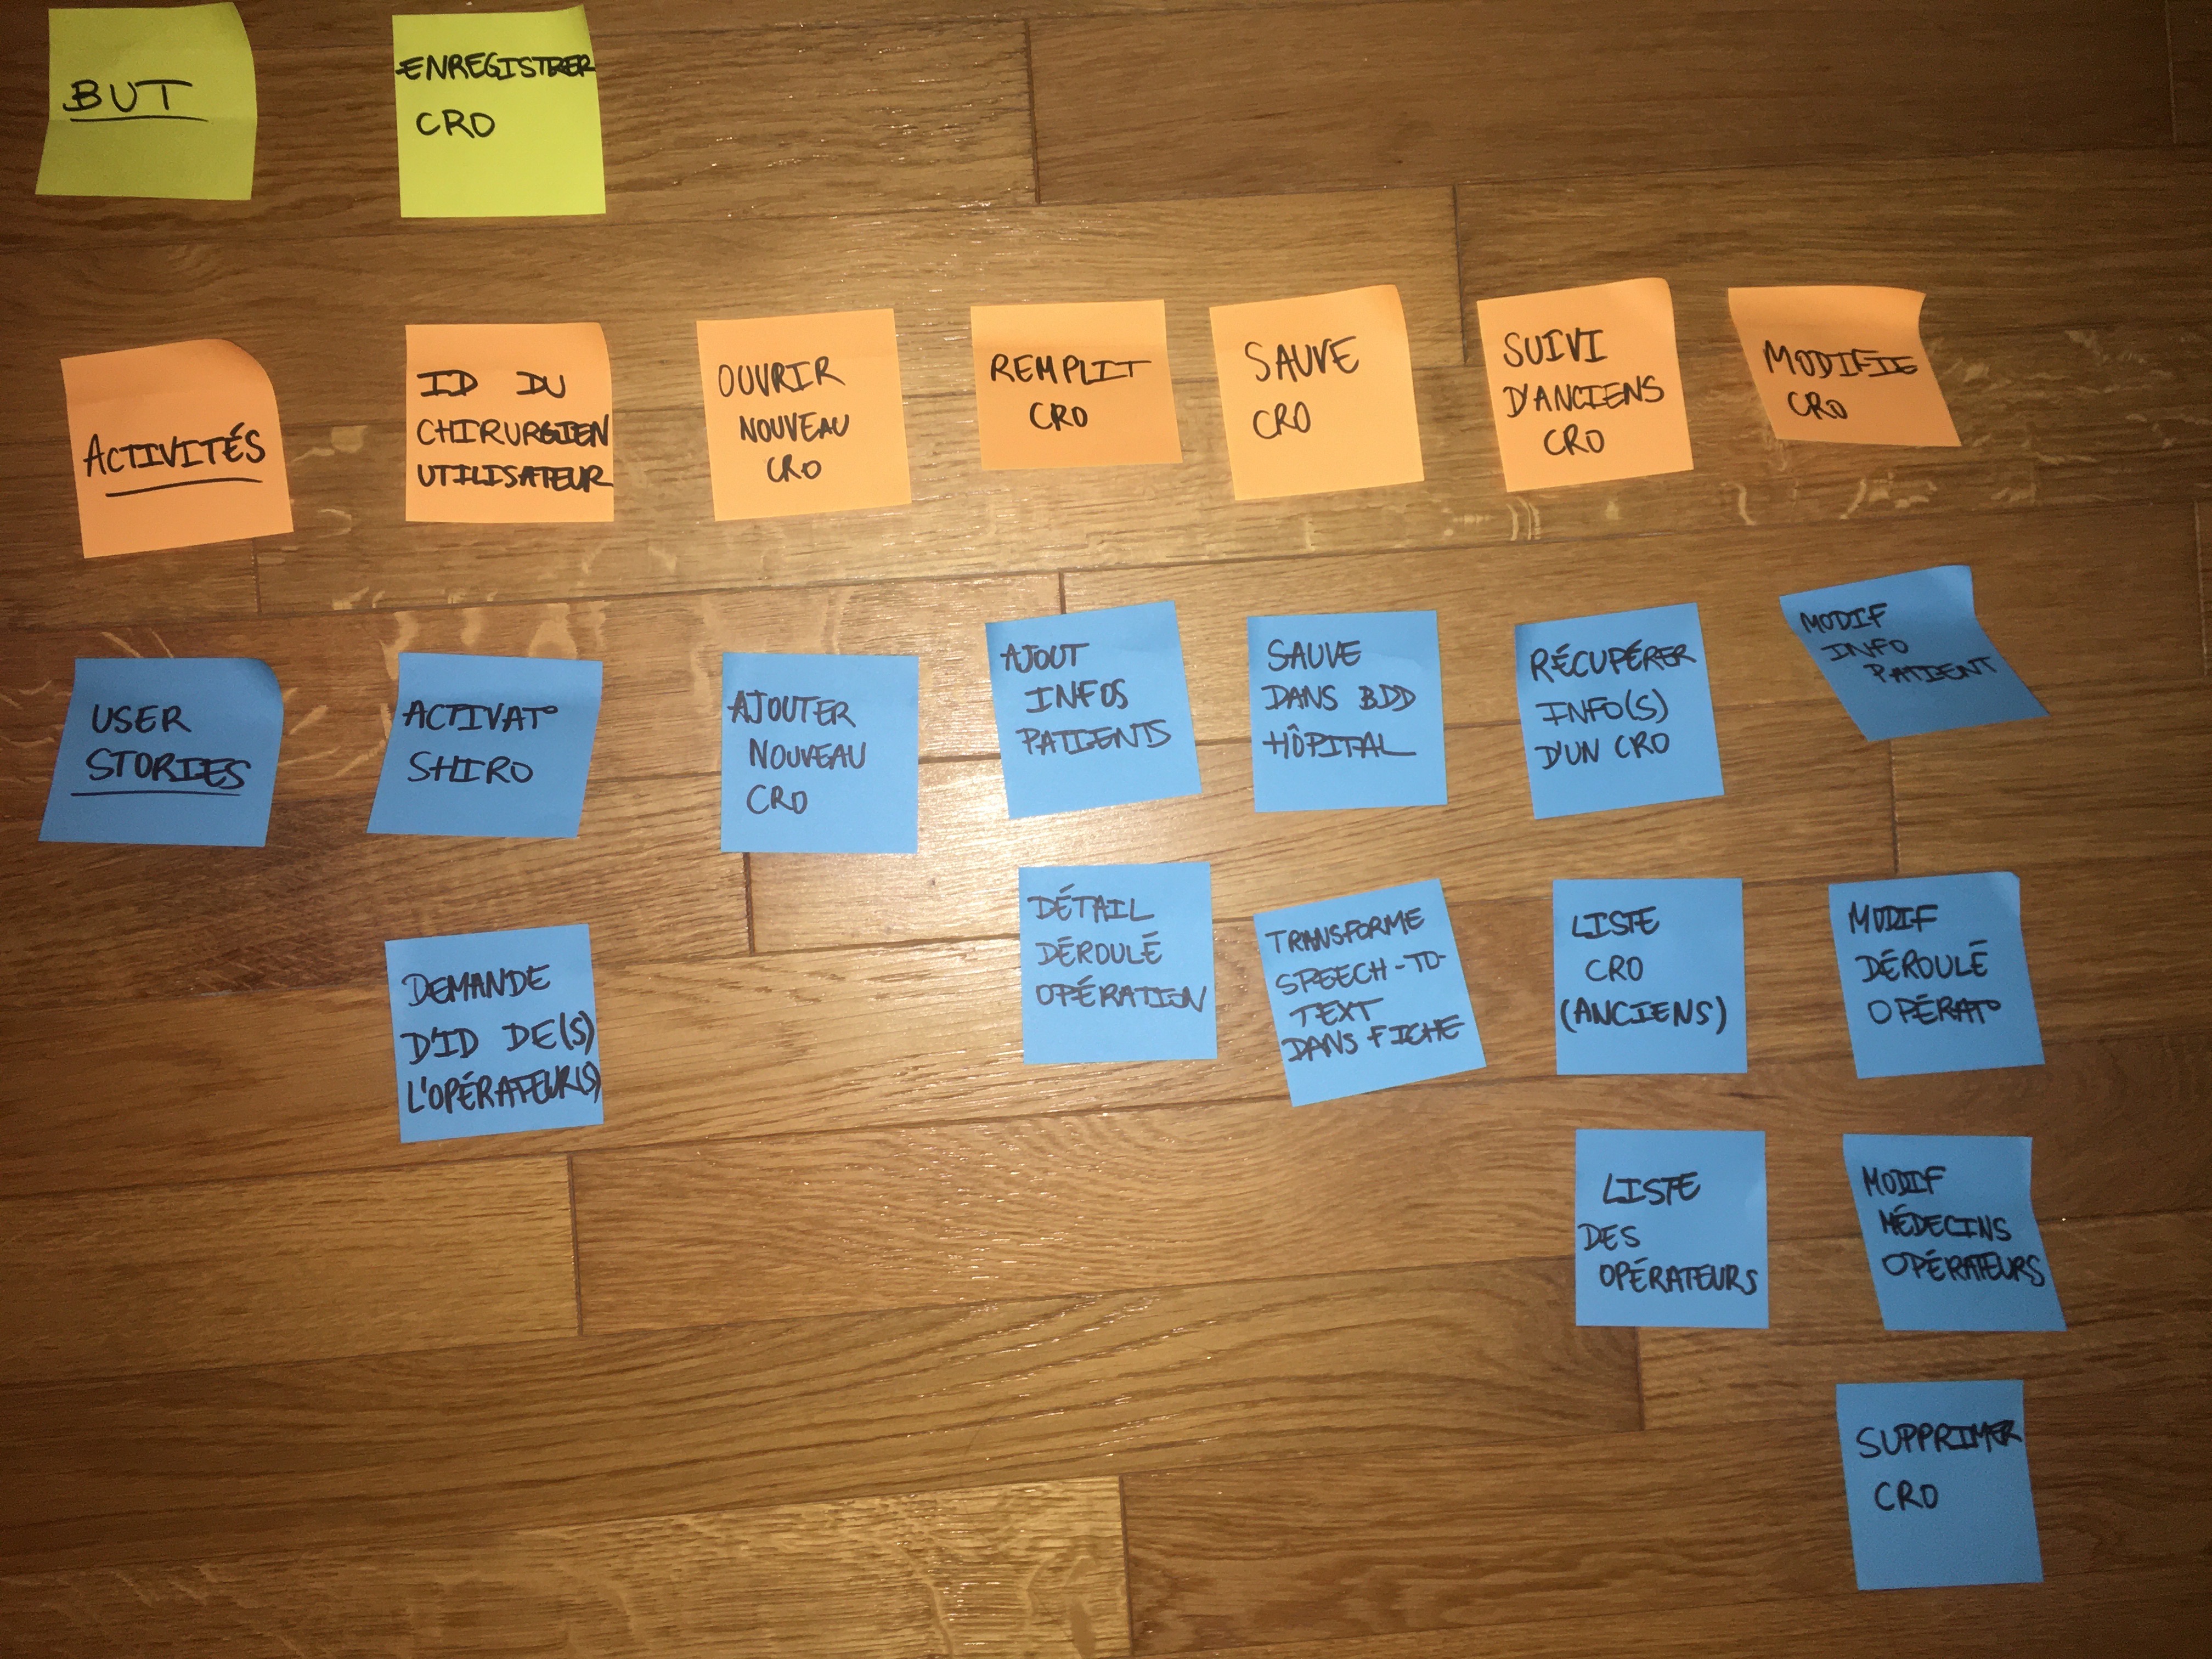 BUT
ENREGISTRER
CRO
ACTIVITÉS
ID DU
CHIRURGIEN
UTILISATEUR
OUVRIR
NOUVEAU
CRO
REMPLIT
CRO
SAUVE
CRO
SUIVI
D'ANCIENS
CRO
MODIFIE
CRO
USER
STORIES
ACTIVAT°
SHIRO
AJOUTER
NOUVEAU
CRO
AJOUT
INFOS
PATIENTS
SAUVE
DANS BDD
HÔPITAL
RÉCUPÉRER
INFO(S)
D'UN CRO
MODIF
INFO
PATIENT
DEMANDE
D'ID DE(S)
L'OPÉRATEUR(S)
DÉTAIL
DÉROULÉ
OPÉRATION
TRANSFORME
SPEECH-TO-
TEXT
DANS FICHE
LISTE
CRO
(ANCIENS)
MODIF
DÉROULÉ
OPÉRAT°
LISTE
DES
OPÉRATEURS
MODIF
MÉDECINS
OPÉRATEURS
SUPPRIMER
CRO